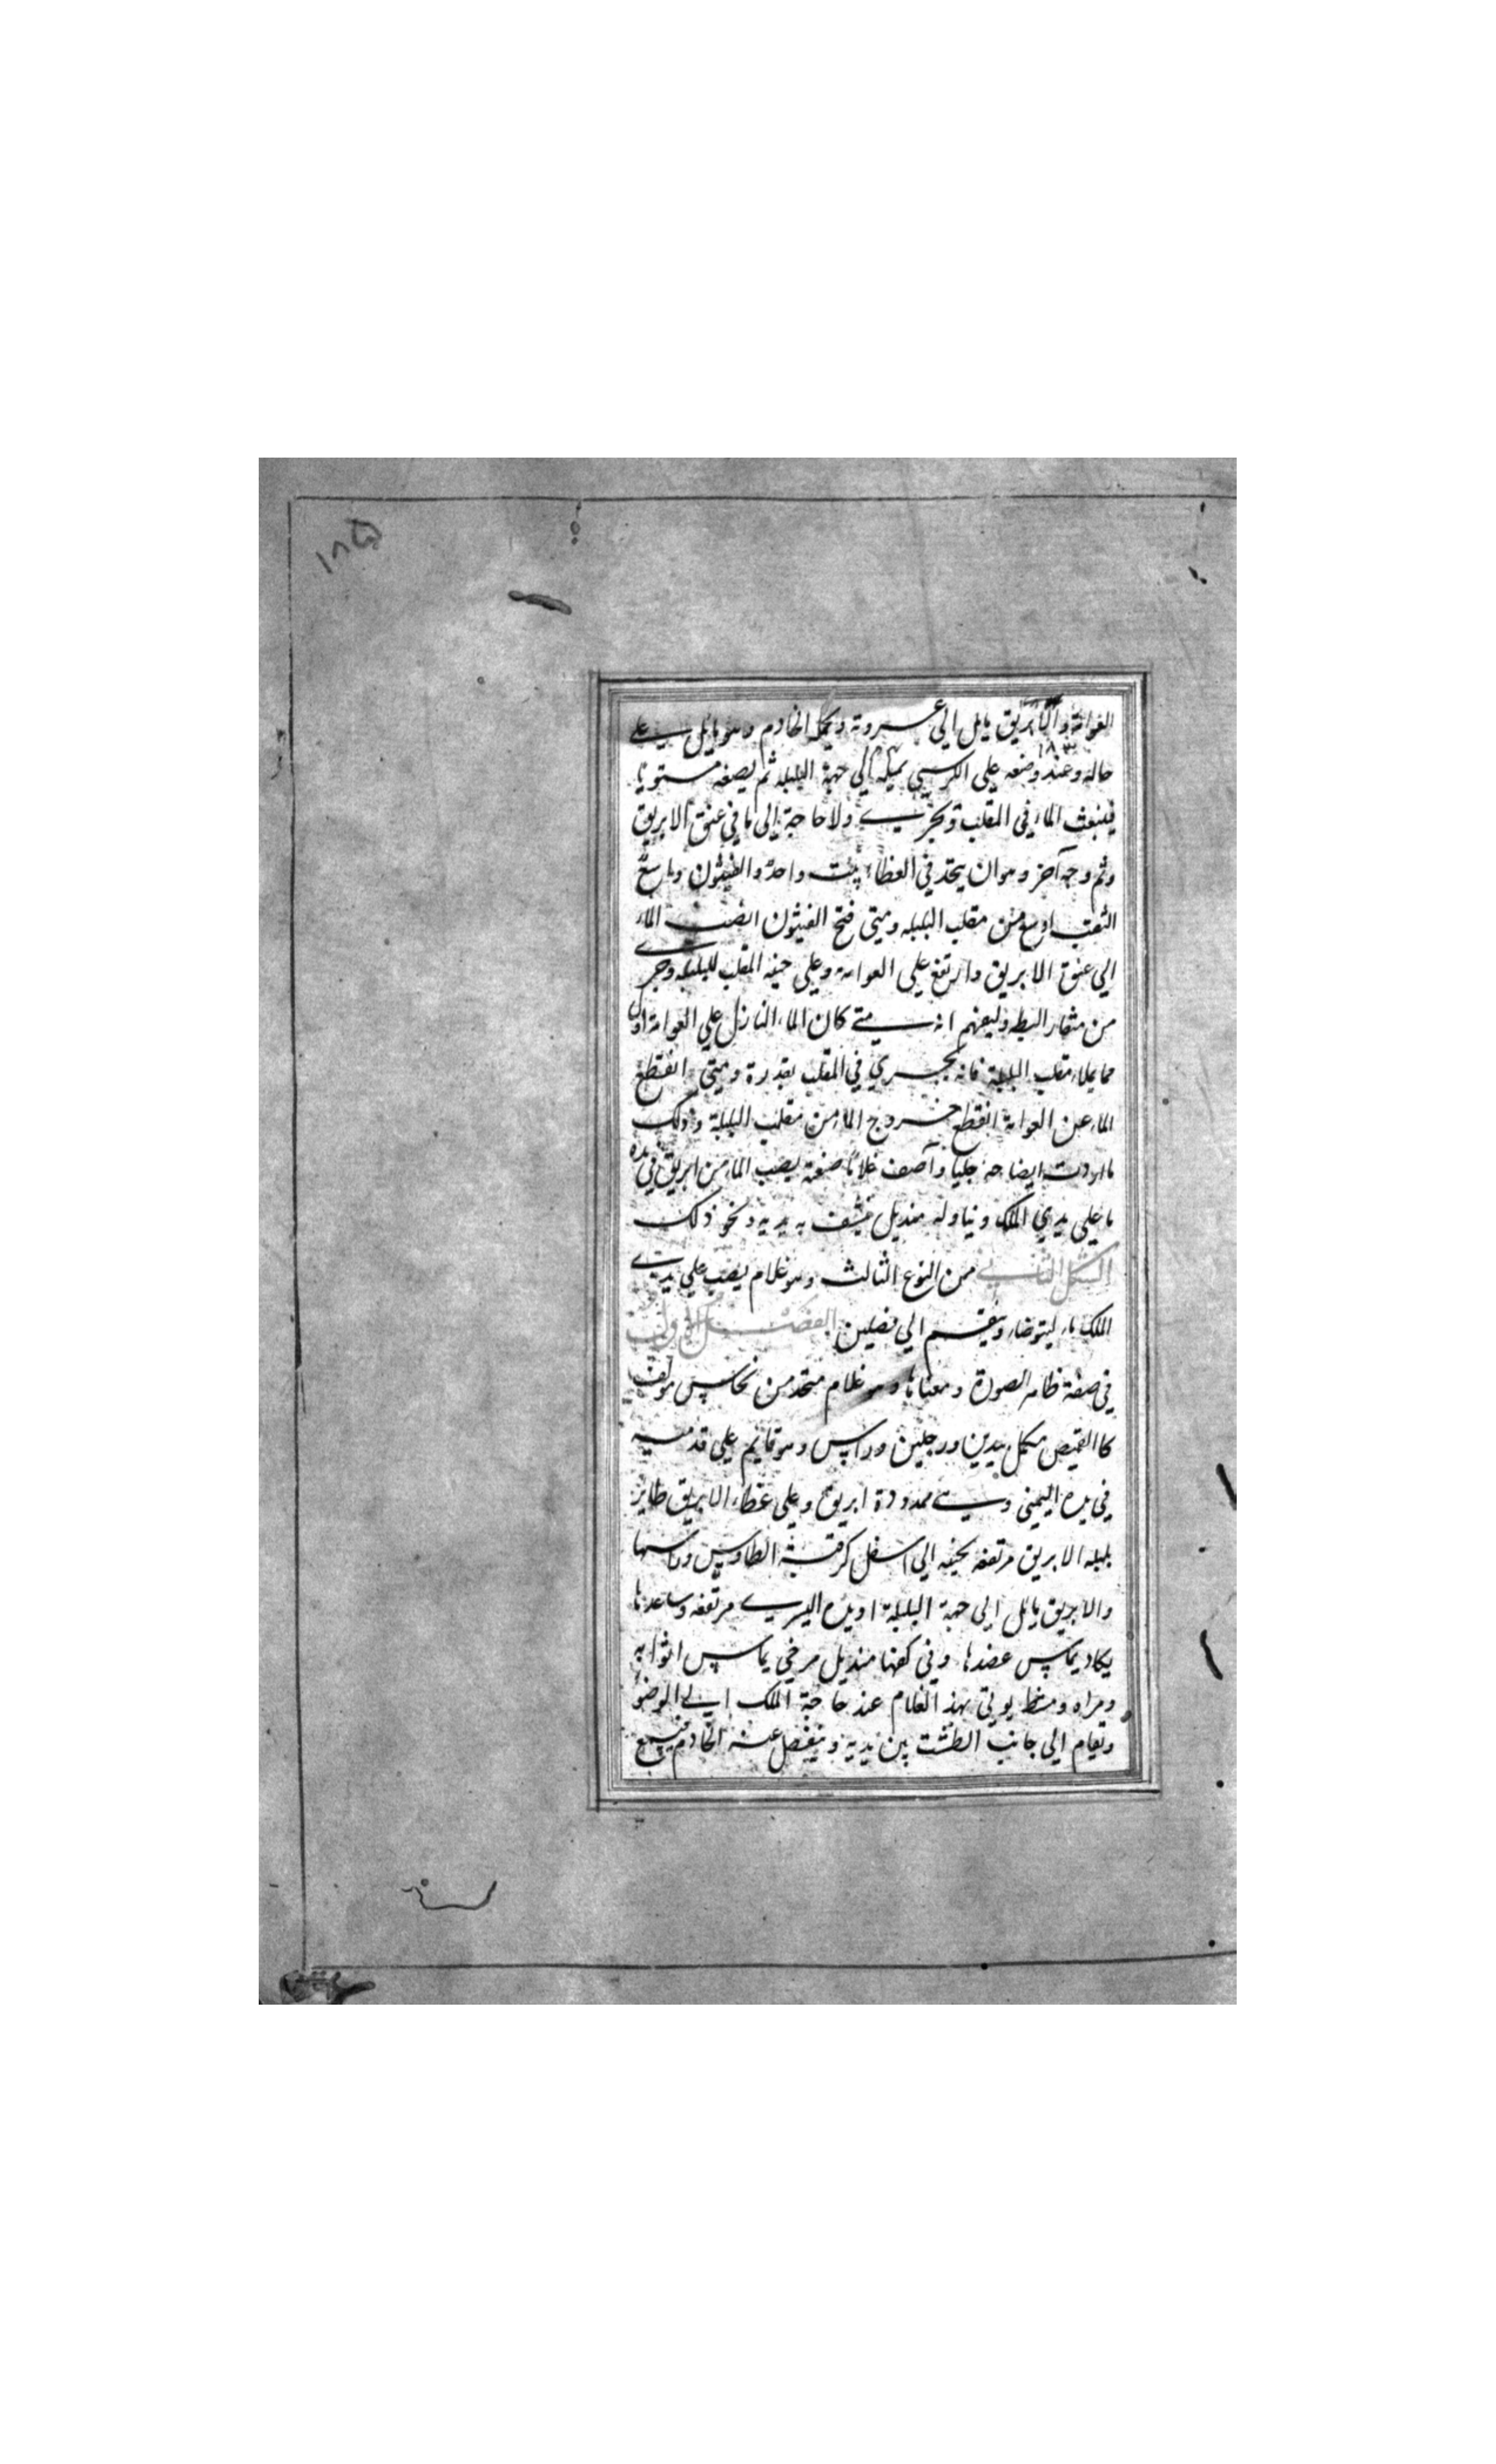 ١٨٥
العوامة والابريق مايل الى عروته ويحمله الخادم وهو مايل على
١٨٣
حاله وعند وضعه على الكرسي يميله الى جهة البلبله ثم يصفه مستويا
فينبعث الماء في المقلب ويجري ولا حاجة الى ما في عنق الابريق
وثم وجه آخر وهو ان يتخذ في الغطاء بيت واحد والفيثون واسع
الثقب اوسع من مقلب البلبله ومتى فتح الفيثون انصب الماء
الي عنق الابريق وارتفع على العوامه وعلى حنيه المقلب للبلبله وجرى
من منقار البطه وليفهم انه متى كان الماء النازل علي العوامة اول
مما يملاء مقلب البلبلة فانه يجري في المقلب بقدرة ومتى انقطع
الماء عن العوامة انقطع خروج الماء من مقلب البلبلة وذلك
ما اردت ايضاحه جليا وآصف غلاما صنعته يصب الماء من ابريق في يده
ما علي يدي الملك ويناوله منديل ينشف به يديه ونحو ذلك
الشكل الثاني من النوع الثالث وهو غلام يصب علي يدي
الملك ماء ليتوضاء وينقسم الي فصلين الفصل الاول
في صفة ظاهر الصورة ومعناها وهو غلام متخذ من نحاس مولف
كالقميص مكمل بيدين ورجلين وراس وهو قايم علي قدميه
في يده اليمني وهي ممدودة ابريق وعلي غطاء الابريق طاير
بلبله الابريق مرتفعه بحنيه الي اسفل كرقبة الطاوس وراسها
والابريق مايل الى جهة البلبلة او يده اليسرى مرتفعه وساعدها
يكاد يماس عضدها وفي كفها منديل مرخي يماس اثوابه
ومراه ومشط يوتي بهذ الغلام عند حاجة الملك الى الوضوء
وتقام الي جانب الطشت بين يديه وينفصل عنه الخادم فيسمع